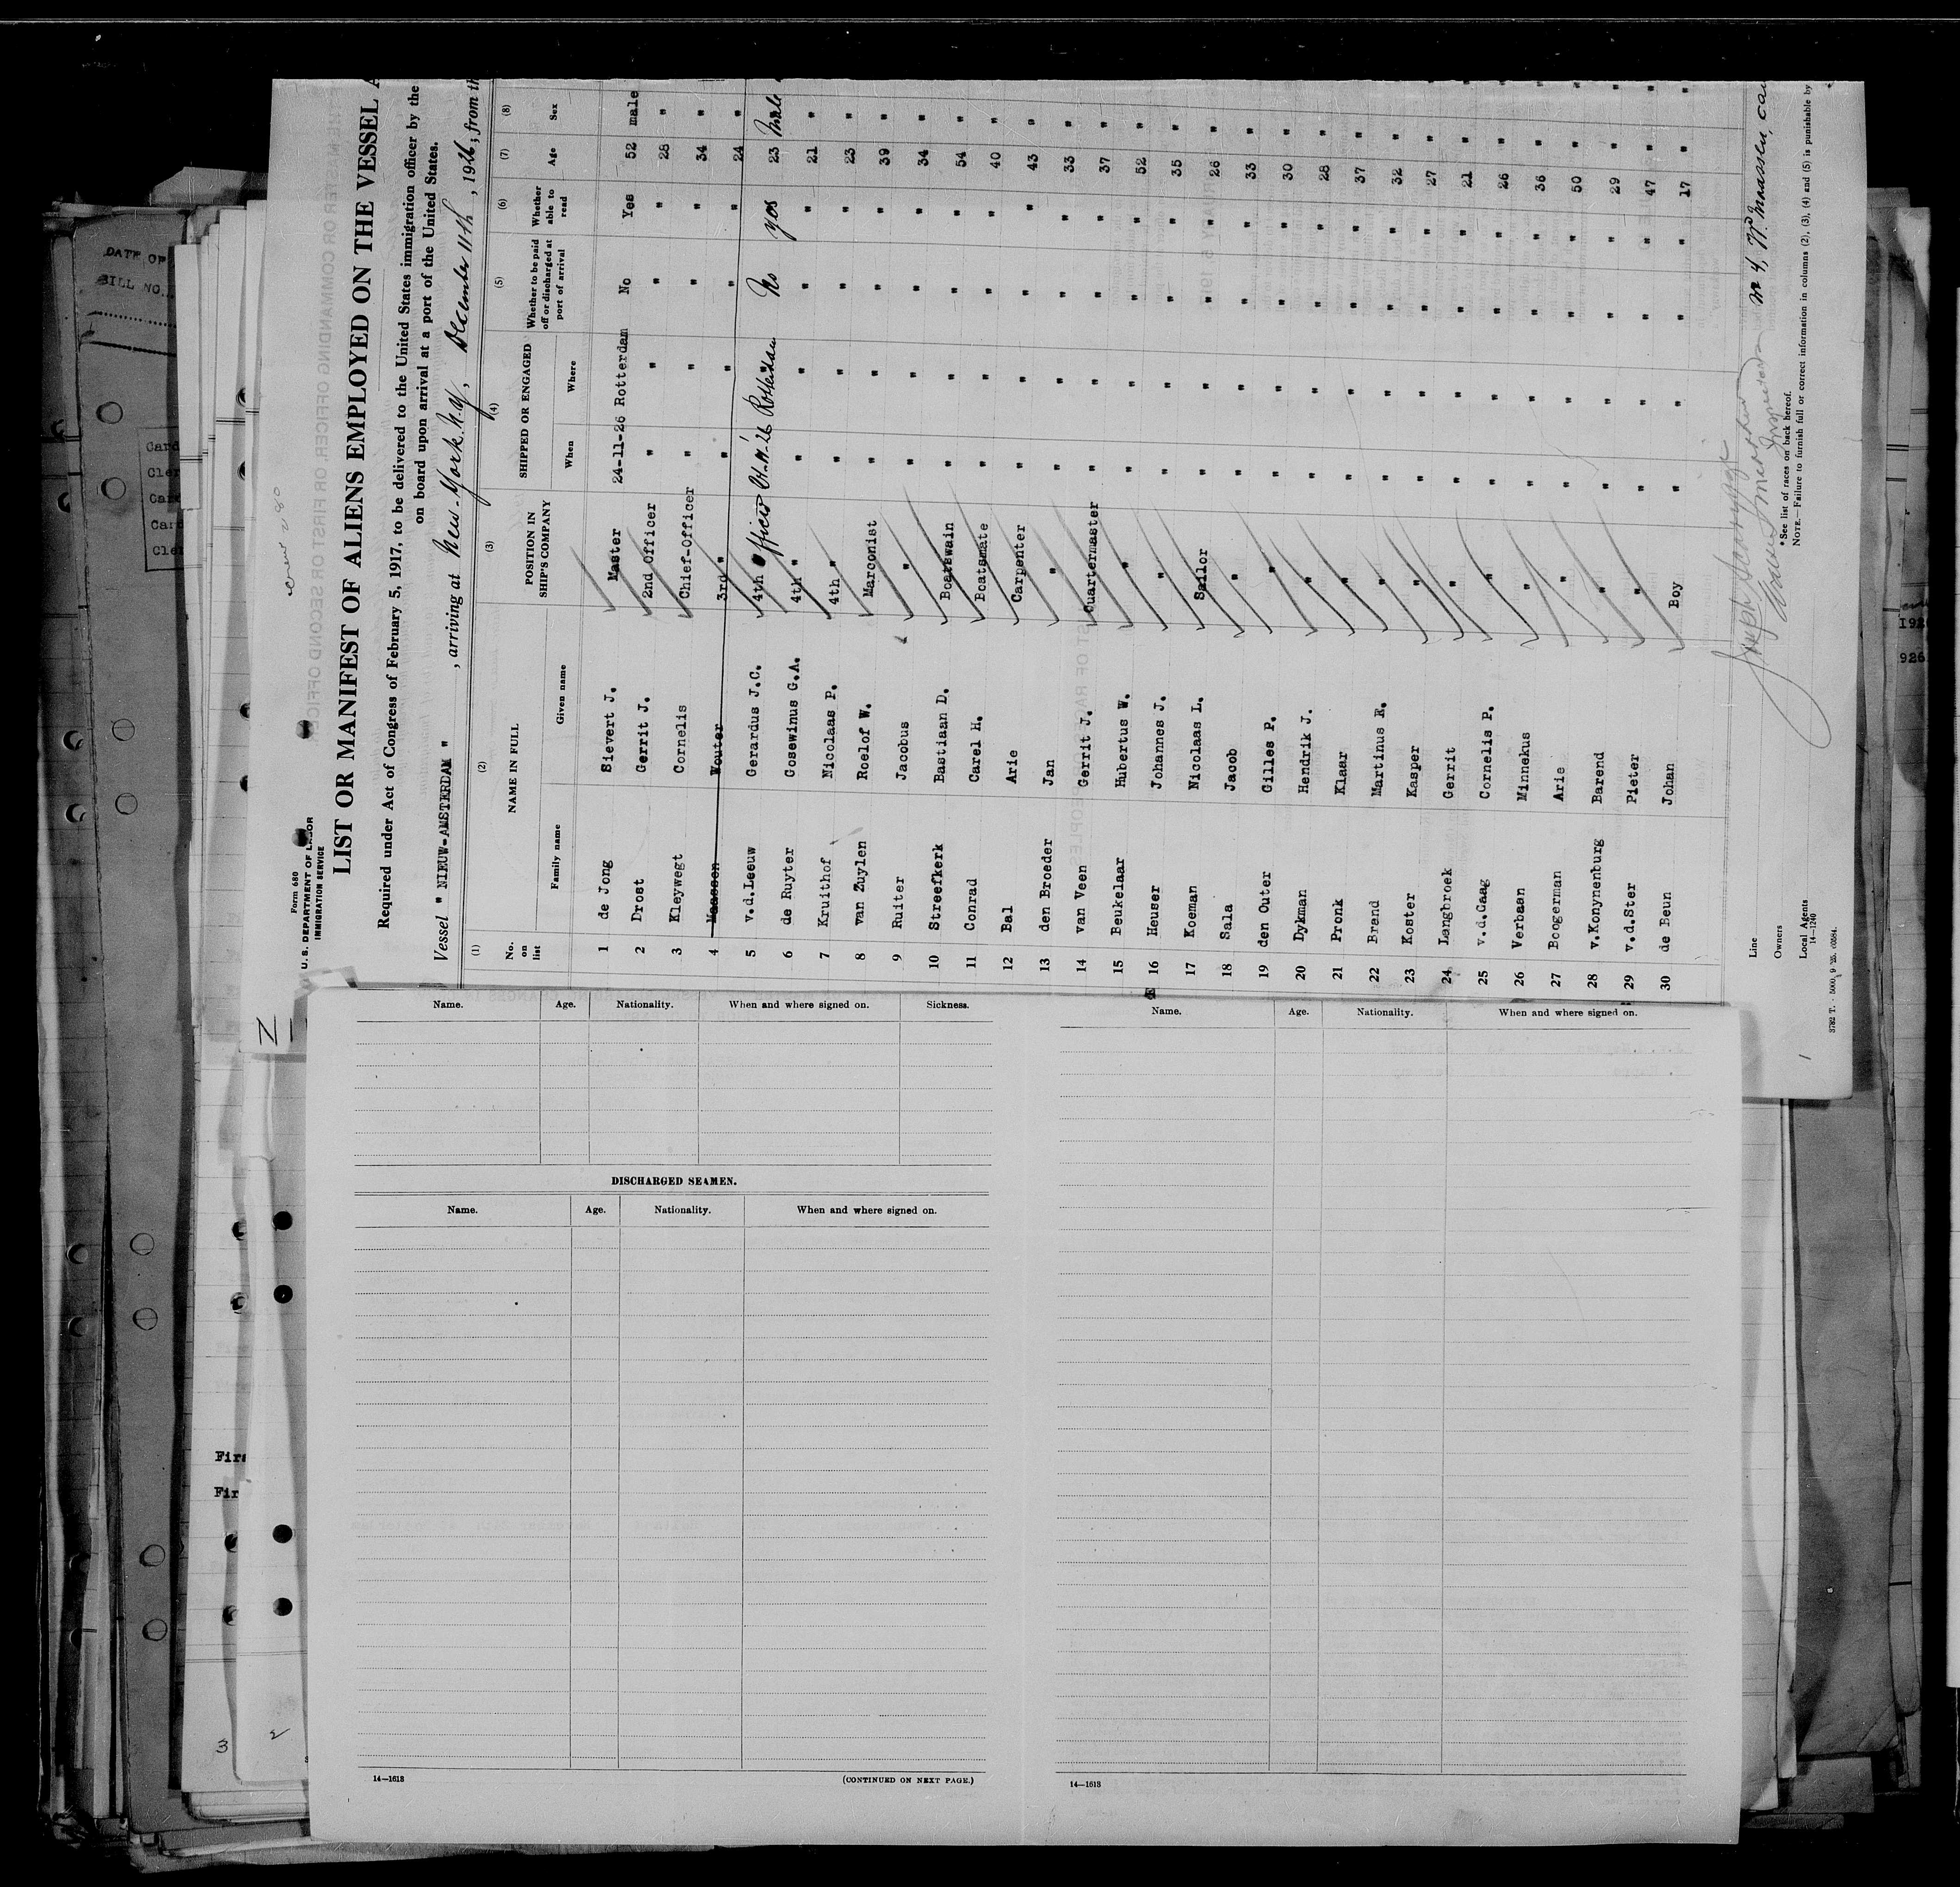 Form 680
U. S. DEPARTMENT OF LABOR
IMMIGRATION SERVICE
LIST OR MANIFEST OF ALIENS EMPLOYED ON THE VESSEL A
Required under Act of Congress of February 5, 1917, to be delivered to the United States immigration officer by the
on board upon arrival at a port of the United States.
Vessel " NIEUW-AMSTERDAM " , arriving at New-York. N.Y., December 11th , 1926, from th
(1) (2) (3) (4) (5) (6) (7) (8)
No. on list
NAME IN FULL
Family name Given name
POSITION IN SHIP'S COMPANY
SHIPPED OR ENGAGED
When Where
Whether to be paid off or discharged at port of arrival
Whether able to read
Age
Sex
1 de Jong Sievert J. Master 24-11-26 Rotterdam No Yes 52 male
2 Drost Gerrit J. 2nd Officer " " " " 28 "
3 Kleywegt Cornelis Chief-Officer " " " " 34 "
4 Maassen Wouter 3rd " " " " " 24 "
5 v.d.Leeuw Gerardus J.C. 4th officer Rotterdam No yes 23 Male
6 de Ruyter Gosewinus G.A. 4th " " " " " 21 "
7 Kruithof Nicolaas P. 4th " " " " " 23 "
8 van Zuylen Roelof W. Marconist " " " " 39 "
9 Ruiter Jacobus " " " " " 34 "
10 Streefkerk Bastiaan D. Boatswain " " " " 54 "
11 Conrad Carel H. Boatsmate " " " " 40 "
12 Bal Arie Carpenter " " " " 43 "
13 den Broeder Jan " " " " " 33 "
14 van Veen Gerrit J. Quartermaster " " " " 37 "
15 Beukelaar Hubertus W. " " " " " 52 "
16 Heuser Johannes J. " " " " " 35 "
17 Koeman Nicolaas L. Sailor " " " " 26 "
18 Sala Jacob " " " " " 33 "
19 den Outer Gilles P. " " " " " 30 "
20 Dykman Hendrik J. " " " " " 28 "
21 Pronk Klaar " " " " " 37 "
22 Brand Martinus R. " " " " " 32 "
23 Koster Kasper " " " " " 27 "
24 Langbroek Gerrit " " " " " 21 "
25 v.d.Gaag Cornelis P. " " " " " 26 "
26 Verbaan Minnekus " " " " " 36 "
27 Boogerman Arie " " " " " 50 "
28 v.Konynenburg Barend " " " " " 29 "
29 v.d.Ster Pieter " " " " " 47 "
30 de Beun Johan Boy " " " " 17 "
Line
Owners
Local Agents
14—1240
Inspector
*See list of races on back hereof.
NOTE.—Failure to furnish full or correct information in columns (2), (3), (4) and (5) is punishable by
Name. Age. Nationality. When and where signed on. Sickness.
DISCHARGED SEAMEN.
Name. Age. Nationality. When and where signed on.
14—1613 (CONTINUED ON NEXT PAGE.)
Name. Age. Nationality. When and where signed on.
14—1613
DATE OF
BILL NO.
Card
Cler
Card
Card
Cler
Firs
Fir
3
2
192
926